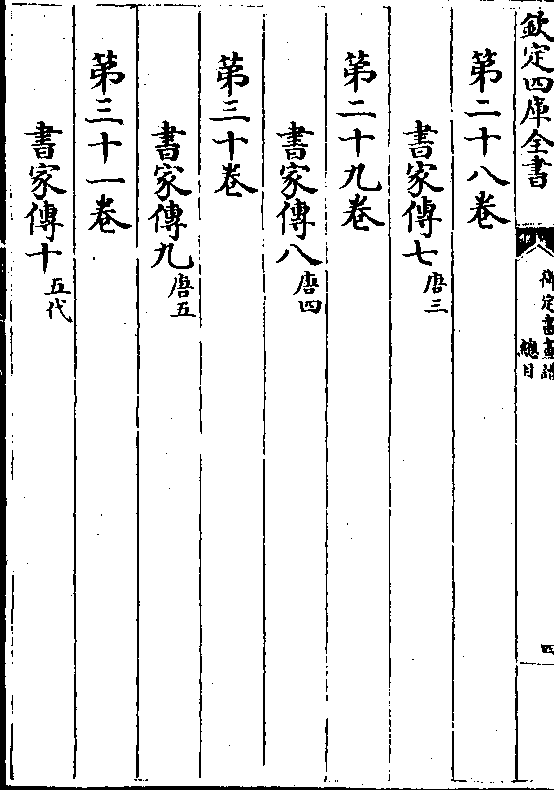 欽定四庫全書
御定書畫譜
總目
四
第二十八卷
書家傳七唐三
第二十九卷
書家傳八唐四
第三十卷
書家傳九唐五
第三十一卷
書家傳十五代